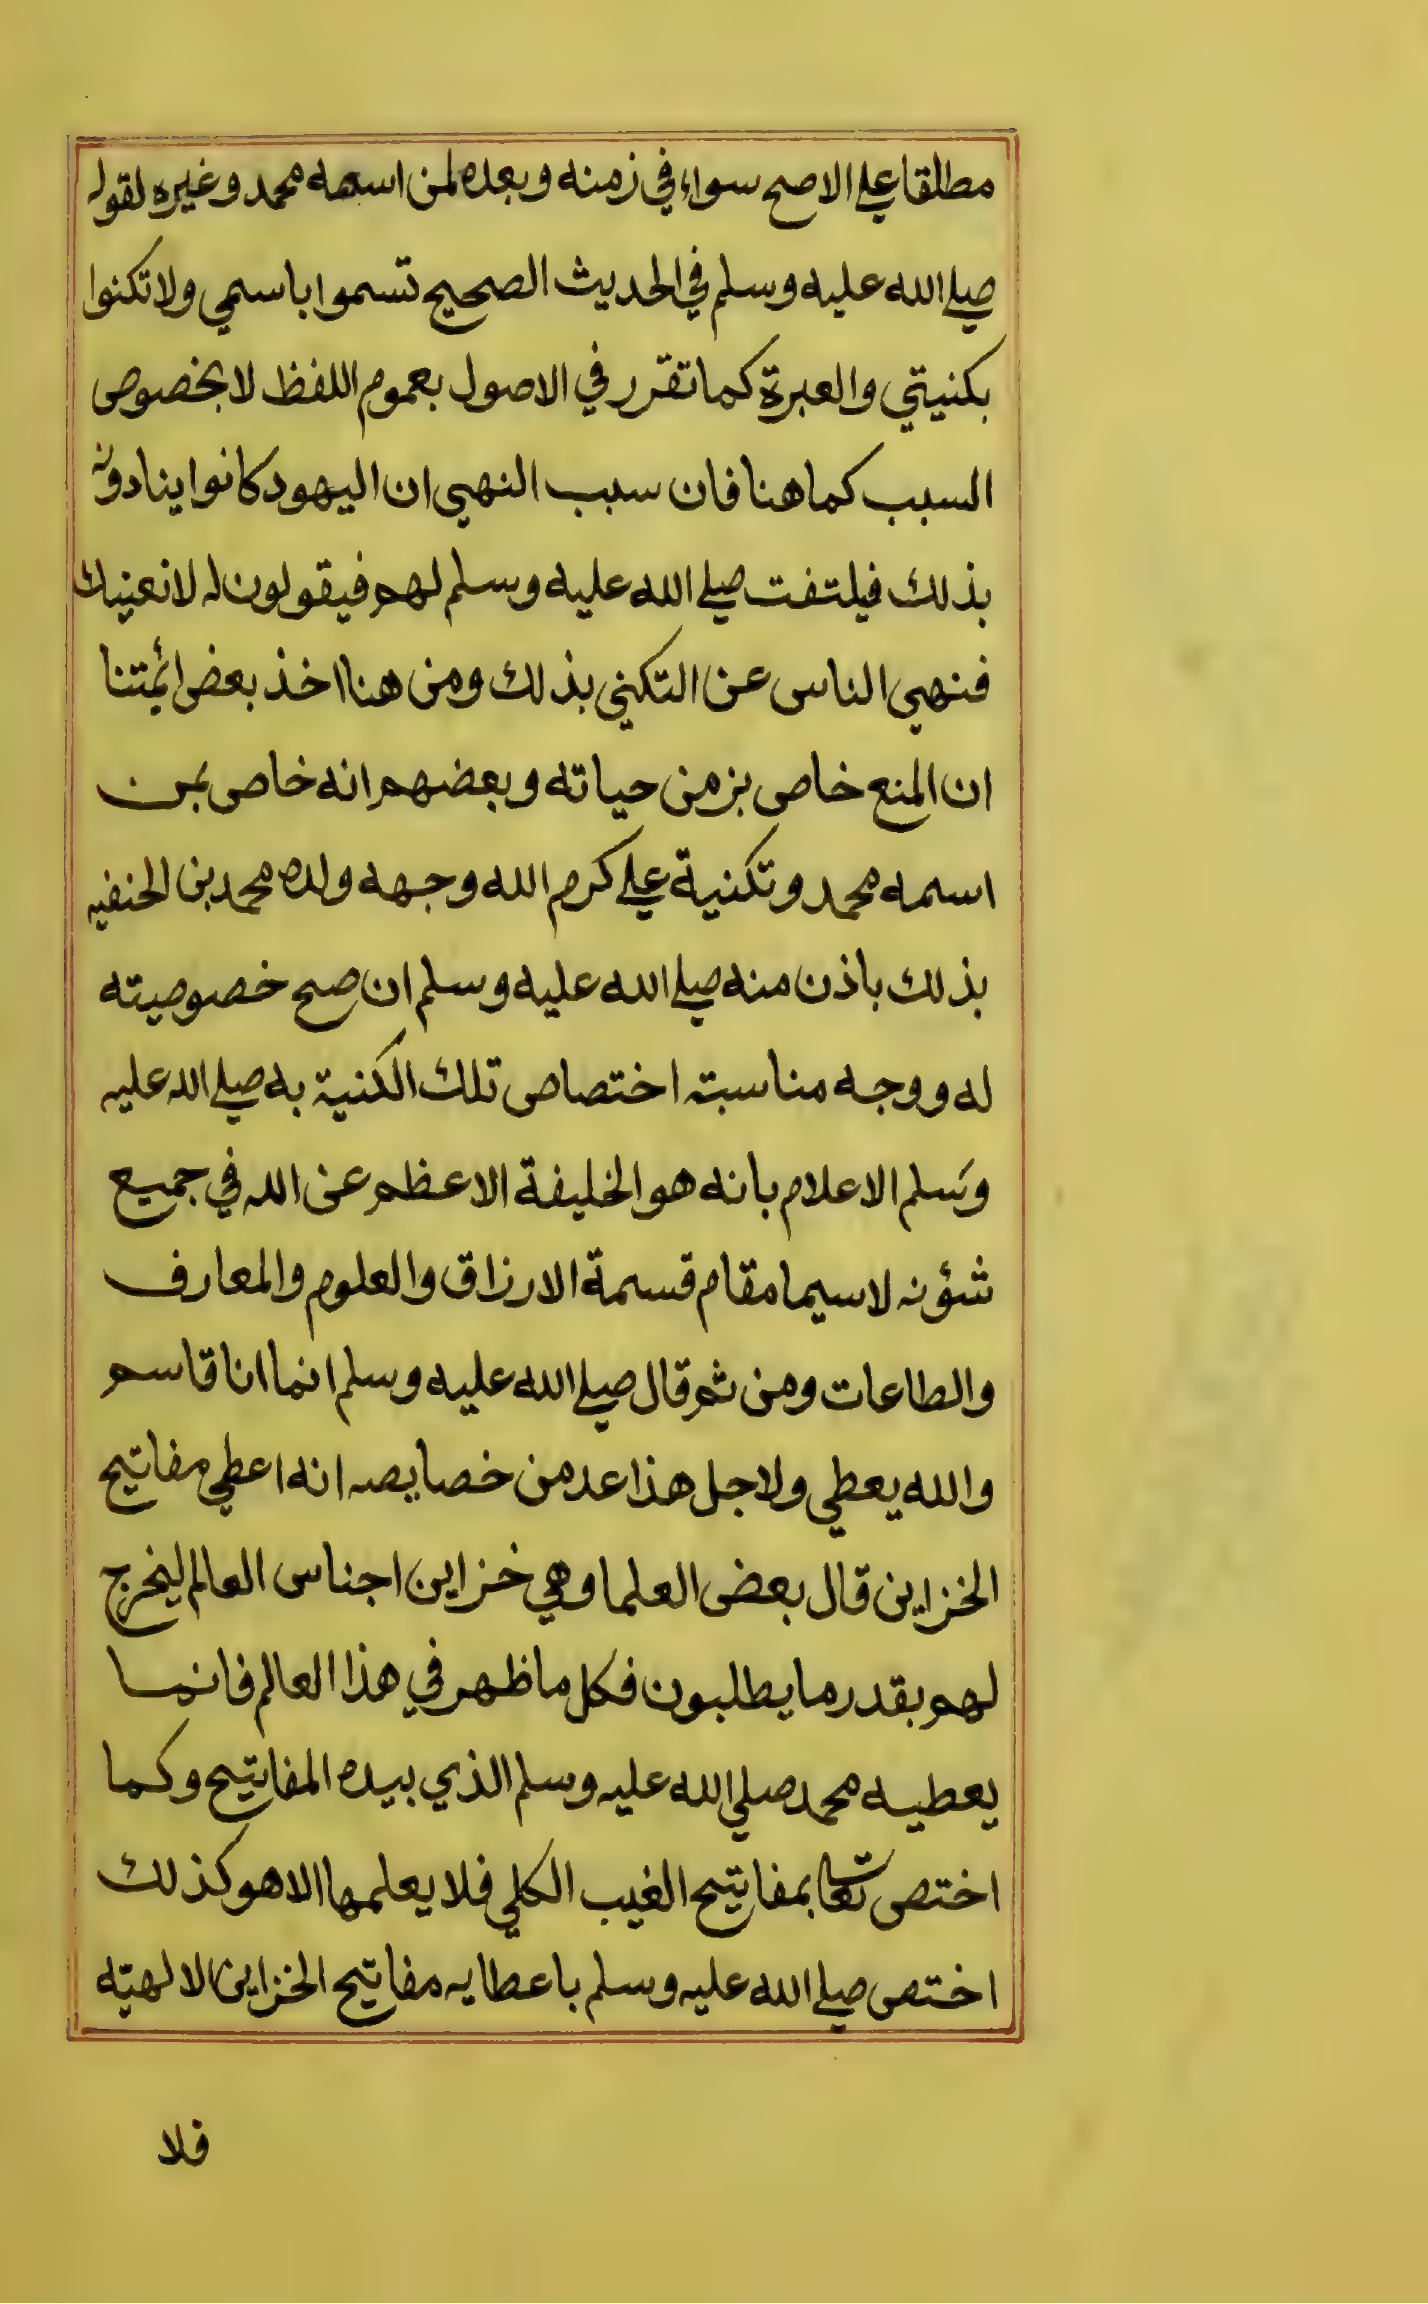 مطلقا علي الاصح سواء في زمنه وبعده لمن اسمه محمد وغيره لقوله
صلي الله عليه وسلم في الحديث الصحيح تسموا باسمي ولا تكنوا
بكنيتي والعبرة كما تقرر في الاصول بعموم اللفظ لا بخصوص
السبب كما هنا فان سبب النهي ان اليهود كانوا ينادونه
بذلك فيلتفت صلي الله عليه وسلم لهم فيقولون له لا نعنيك
فنهي الناس عن التكني بذلك ومن هنا اخذ بعض ائمتنا
ان المنع خاص بزمن حياته وبعضهم انه خاص بمن
اسمه محمد وتكنية علي كرم الله وجهه ولده محمد بن الحنفيه
بذلك باذن منه صلي الله عليه وسلم ان صح خصوصيته
له ووجه مناسبته اختصاص تلك الكنية به صلي الله عليه
وسلم الاعلام بانه هو الخليفة الاعظم عن الله في جميع
شؤنه لا سيما مقام قسمة الارزاق والعلوم والمعارف
والطاعات ومن ثم قال صلي الله عليه وسلم انما انا قاسم
والله يعطي ولاجل هذا عد من خصايصه انه اعطي مفاتيح
الخزاين قال بعض العلما وهي خزاين اجناس العالم ليخرج
لهم بقدر ما يطلبون فكل ما ظهر في هذا العالم فانما
يعطيه محمد صلي الله عليه وسلم الذي بيده المفاتيح وكما
اختص تعا بمفاتيح الغيب الكلي فلا يعلمها الا هو كذلك
اختص صلي الله عليه وسلم باعطايه مفاتيح الخزاين الالهيّه
فلا